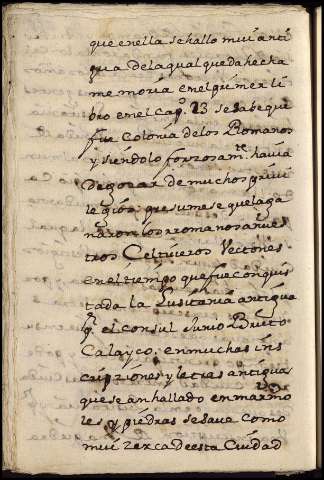 que enella se hallo mui anti
gua dela qual queda hecha
memoria en el primer li
bro en el Capº. 13 se sabe que
fue Colonia delos Romanos
y siendolo forzosamte. havia
de gozar de muchos privi
legios: presumese que la ga
naron los rromanos a nues
tros Celtiveros Vectones
en el tiempo que fue conquis
tada la Lusitania antigua
pr. el Consul Junio Bruto
Calayco. en muchas ins
cripziones y letras antiguas
que se an hallado en marmo
les y piedras se save como
mui zerca de esta Ciudad